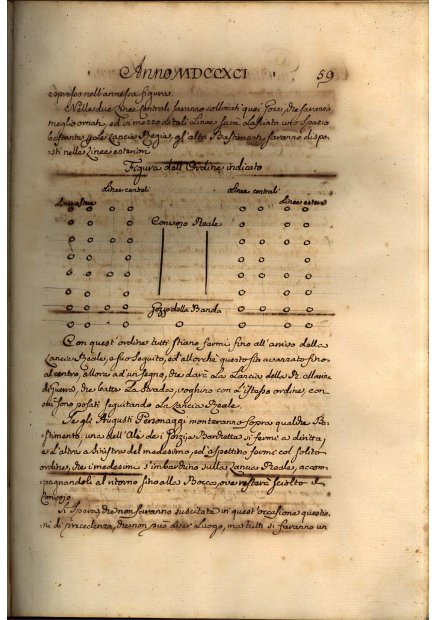 Anno MDCCXCI 59
espresso nell'annessa figura.
Nelle due Linee Centrali saranno collocati quei Gozzi, che saranno
meglio ornati, ed in mezzo di tali Linee sarà lasciato uno spazio
bastante p le Lancie Regie, gl'altri Bastimenti saranno dispo-
sti nelle Linee esteriori
Figura dell'Ordine indicato
Linee centrali Linee centrali
Linee estere Linee estere
Convojo Reale
Gozzo della Banda
Con quest'ordine tutti stiano fermi, fino all'arrivo della
Lancia Reale, e suo seguito, ed allorchè questo sia avanzato fino
al centro, allora ad un segno, che darà la Lancia della R. Marina
di Guerra, che batte la strada, voghino con l'istesso ordine, con
cui sono posati seguitando la Lancia Reale.
Se gli Augusti Personaggi monteranno sopra qualche Ba-
stimento, una dell'Ale dei Gozzi e Barchetta si fermi a diritta,
e l'altra a sinistra del medesimo, ed aspettino fermi col solito
ordine, che i medesimi s'imbarchino sulla Lancia Reale, accom-
pagnandoli al ritorno fino alla Bocca, ove resterà sciolto il
Convojo
Si spera, che non saranno suscitate in quest'occasione questio-
ni di precedenza, che non può aver Luogo, ma tutti si faranno un